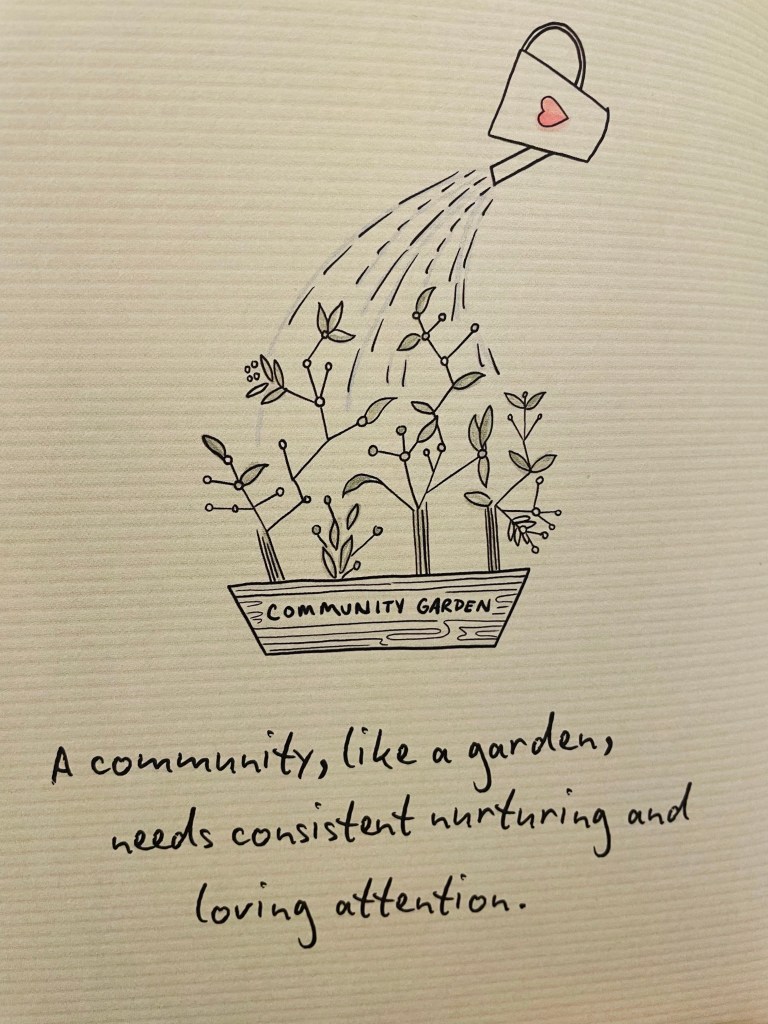 COMMUNITY GARDEN
A community, like a garden,
needs consistent nurturing and
loving attention.